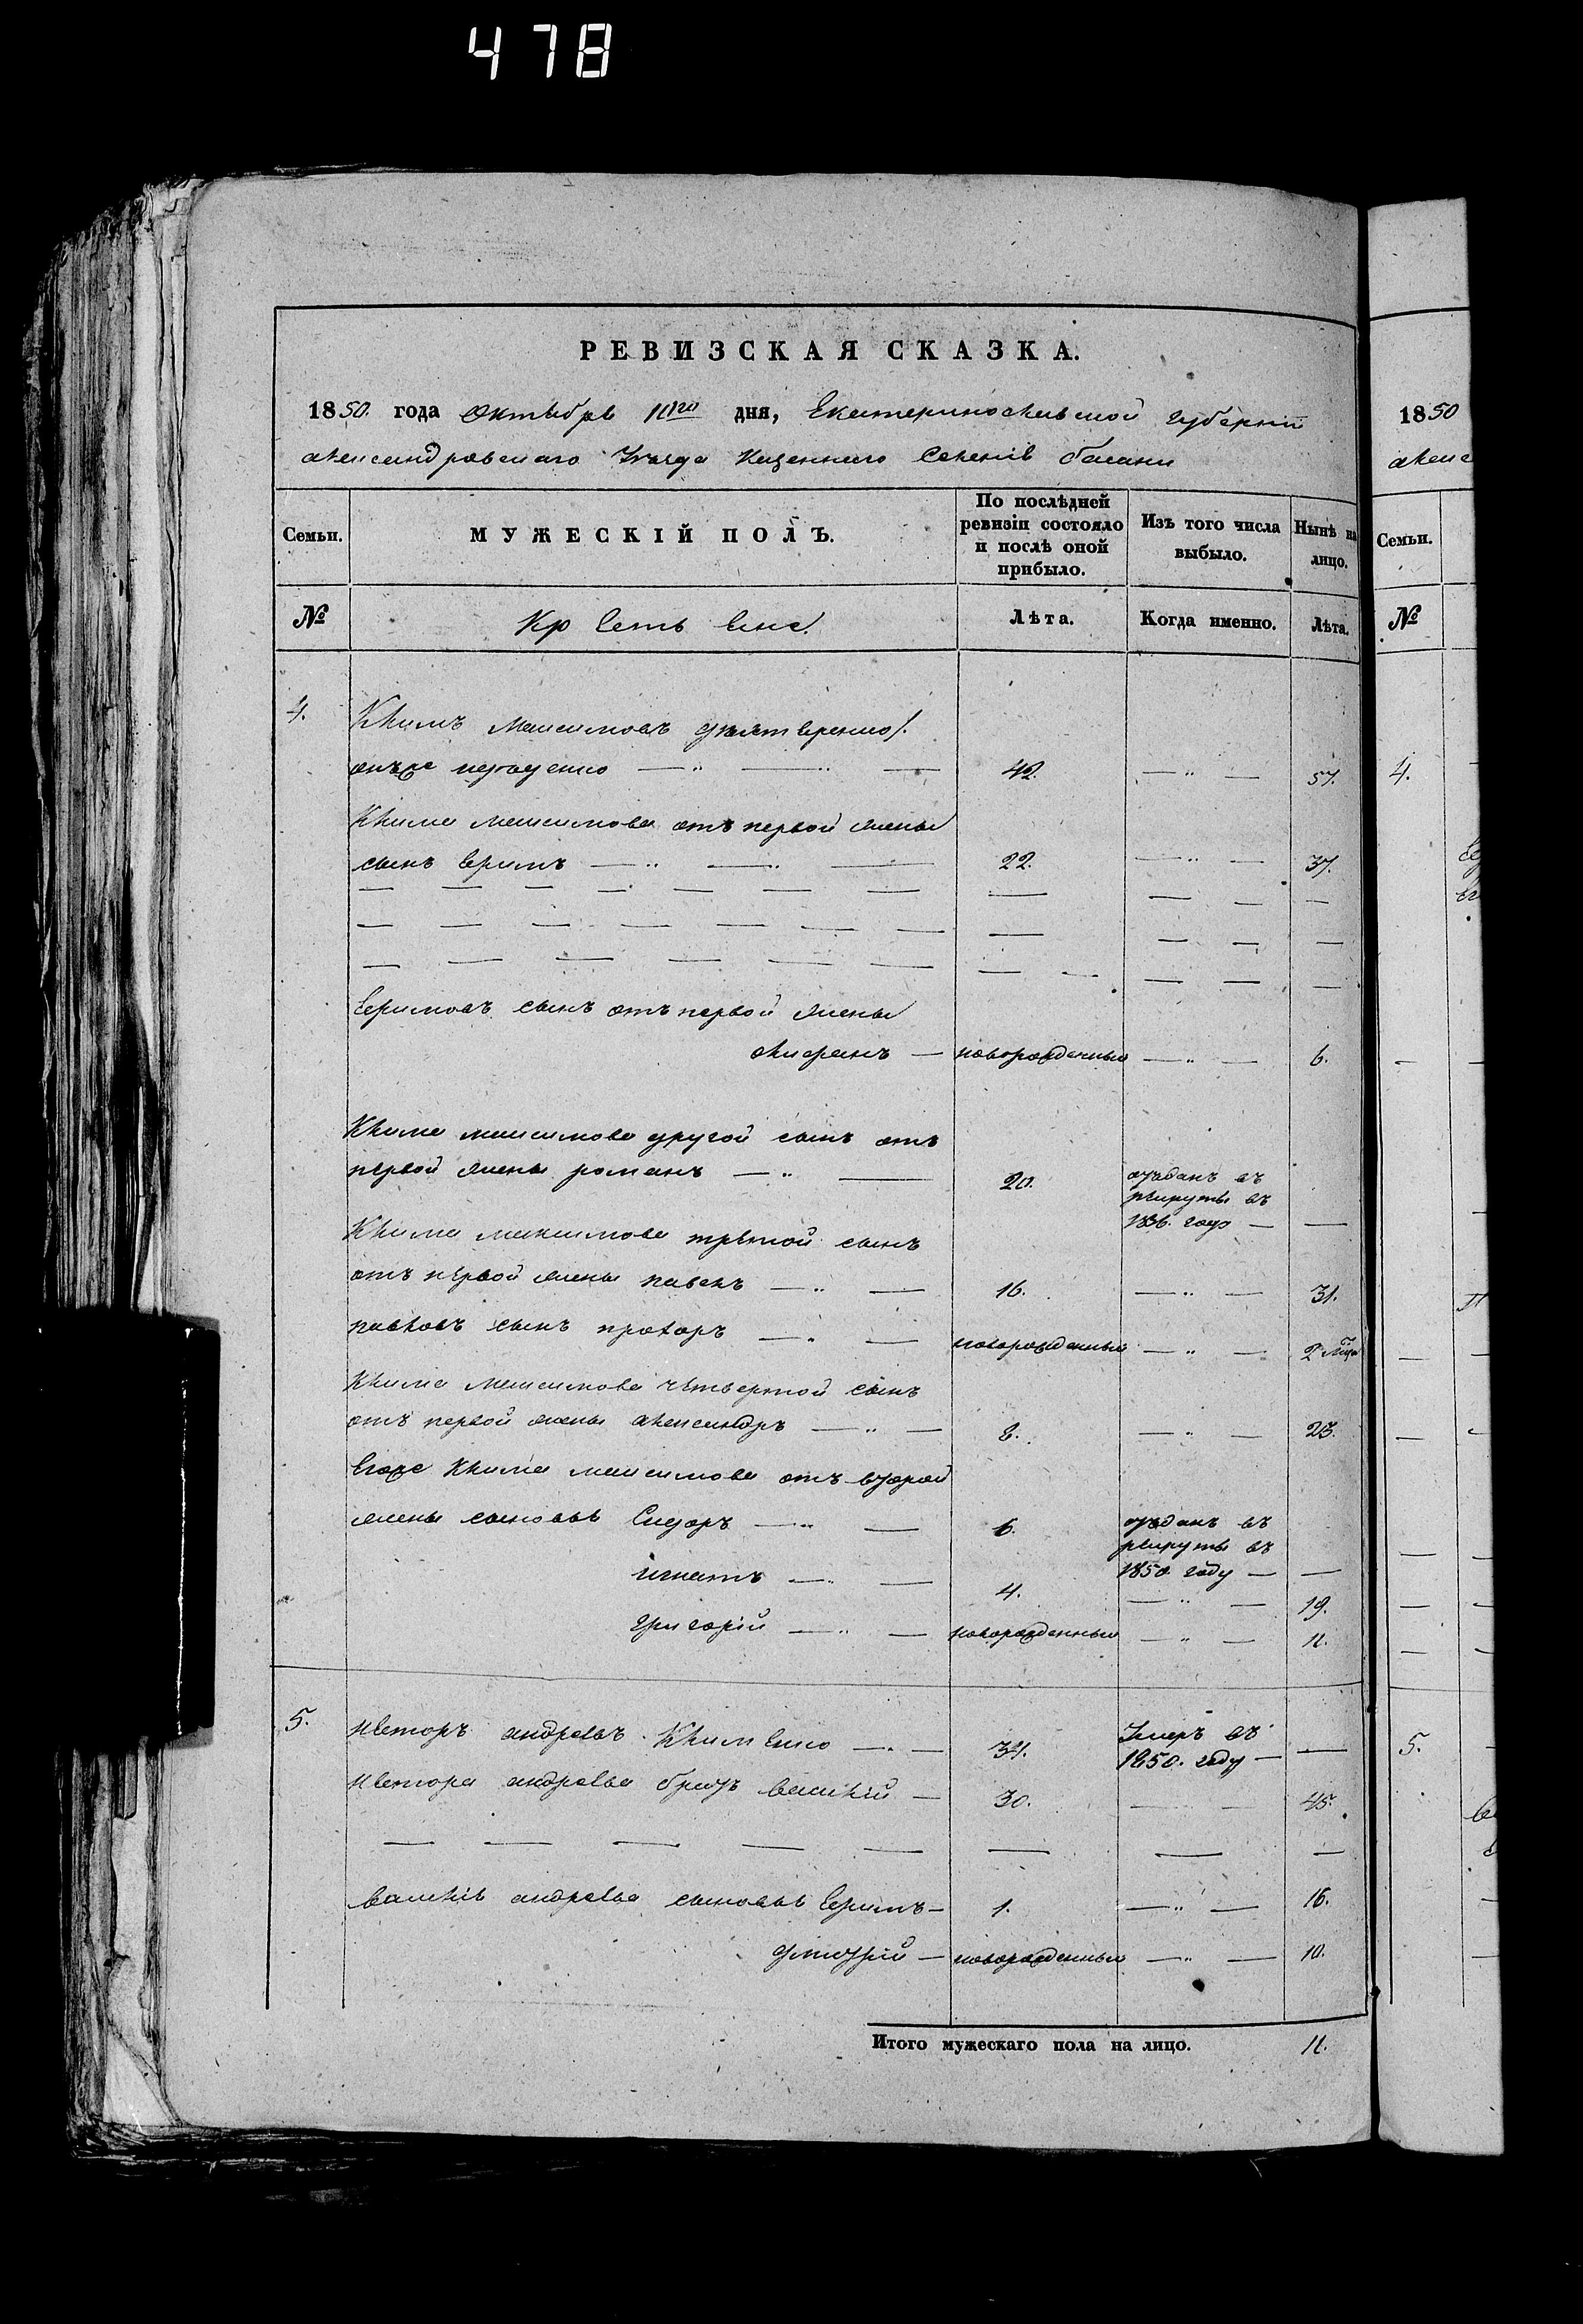 478
РЕВИЗСКАЯ СКАЗКА.
1850. года Октября 11го дня, Екатеринославской губерніи
александровскаго Уѣзда Казеннаго Селенія басани
Семьи.
МУЖЕСКІЙ ПОЛЪ.
По послѣдней ревизіи состояло и послѣ оной прибыло.
Изъ того числа выбыло.
Нынѣ на лицо.
№
Лѣта.
Когда именно.
Лѣта.
4.
Климъ максимовъ
42. 57.
Клима максимова отъ первой жены
сынъ Ефимъ 22. 37.
Ефимовъ сынъ отъ первой жены
новорожденный 6.
Клима максимова другой сынъ отъ
первой жены романъ 20. отъданъ въ
рекруты въ
1836. году
Клима максимова третой сынъ
отъ первой жены павелъ 16. 31.
павловъ сынъ прохоръ новорожденный 2
Клима максимова четвертой сынъ
отъ первой жены александръ 8. 23.
Егоже Клима максимова отъ второй
жены сыновья Сидоръ 6. отъданъ въ
рекруты въ
1850. году
игнатъ 4. 19.
григорій новорожденный 11.
5. нестеръ андреевъ Клименко 34. Умеръ въ
1850. году
нестера андреева братъ василій 30. 45.
василія андреева сыновья Ефимъ 1. 16.
дмитрій новорожденный 10.
Итого мужескаго пола на лицо. 11.
1850
алекс
Семьи.
№
4.
5.